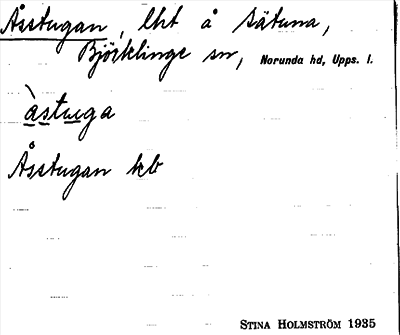 Åsstugan, lht å Sätuna,
Björklinge sn, Norunda hd, Upps. l.
àstuga
Åsstugan kb
STINA HOLMSTRÖM 1935